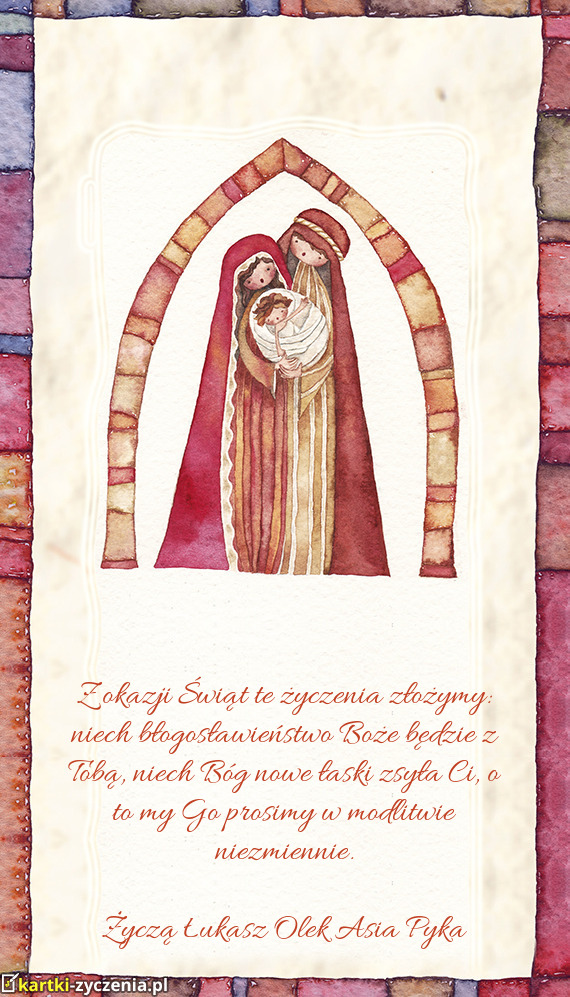 Z okazji Świąt te życzenia złożymy:
niech błogosławieństwo Boże będzie z
Tobą, niech Bóg nowe łaski zsyła Ci, o
to my Go prosimy w modlitwie
niezmiennie.
Życzą Łukasz Olek Asia Pyka
kartki-zyczenia.pl